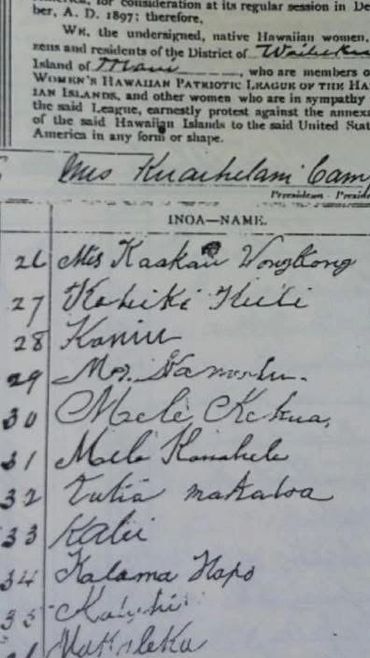 for consideration at its regular session in De
ber, A. D. 1897; therefore,
WE, the undersigned, native Hawaiian women,
zens and residents of the District of Wailuku
Island of Maui, who are members o
WOMEN'S HAWAIIAN PATRIOTIC LEAGUE OF THE HA
IAN ISLANDS, and other women who are in sympathy
the said League, earnestly protest against the annex
of the said Hawaiian Islands to the said United Stat
America in any form or shape.
Mrs Kuaihelani Cam
President
INOA—NAME.
26 Mrs Kaakau Wongkong
27 Kahiki
28 Kaniu
29
30 Mele Kekua
31 Mele Kanahele
32 Lutia makaloa
33 Kalii
34 Kalama Hapo
35